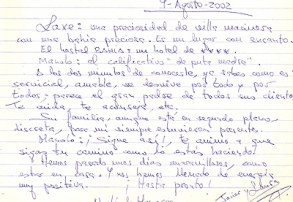 9-Agosto-2002
Laxe: una preciosidad de villa marinera
con una bahía preciosa. Es un lugar con encanto.
El hostal Bahía: un hotel de ****.
Manolo: el calificativo "de puta madre".
A los dos minutos de conocerte, ya sabes como es:
servicial, amable, se desvive por todo y por
todos y parece el ser padre de todos sus clientes.
Te cuida, te
Su familia, aunque esté en segundo plano,
discreta, pero mi siempre estuvieron presente.
Manolo: ¡Sigue así!, te animo a que
sigas tu camino como lo estás haciendo.
Hemos pasado unos días maravillosos, como
estar en casa. Y nos hemos llenado de energía
muy positiva. ¡Hasta pronto!
Javier y